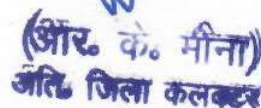 (आर० के० मीना)
अति० जिला कलक्टर